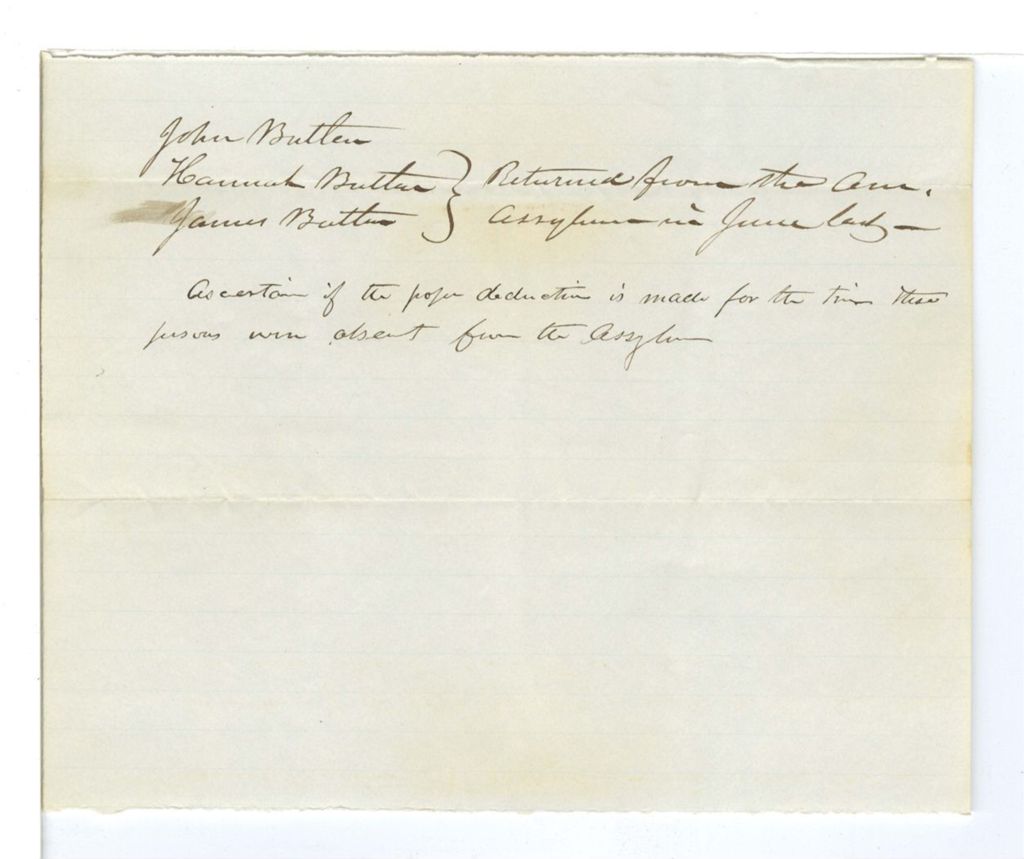 John Butler
Hannah Butler } Returned from the Am.
James Butler } Assylum in June last
Ascertain if the proper deduction is made for the time these
persons were absent from the Assylum